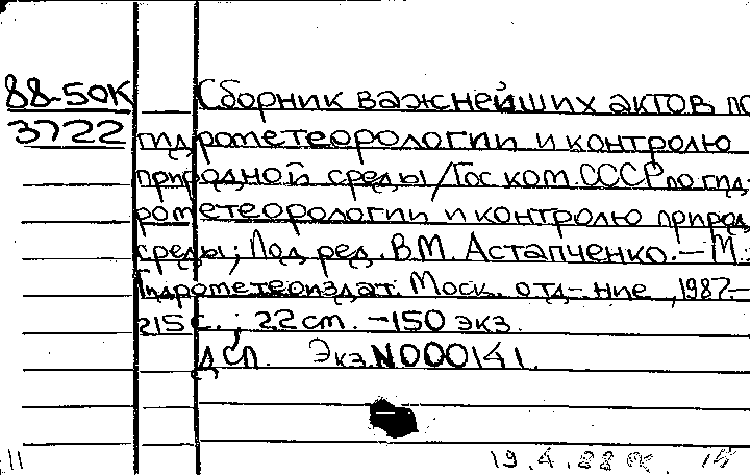 88-50К Сборник важнейших актов по
3722 гидрометеорологии и контролю
природной среды / Гос ком. СССР по гид-
рометеорологии и контролю природ.
среды; Под ред. В.М. Астапченко. - М.:
Гидрометеоиздат: Моск. отд-ние, 1987.-
215 с.; 22 cm. - 150 экз.
ДСП. Экз. N000141.
19.4.88